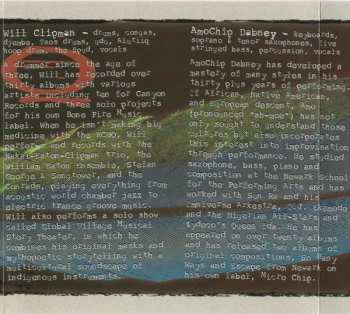 Will Clipman - drums, congas,
djembe, Taos drums, udu, Alutiiq
hoop drum, the Spud, vocals
A drummer since the age of
three, Will has recorded over
thirty albums with various
artists including ten for Canyon
Records and three solo projects
for his own Bone Fire Music
label. When he isn't making big
medicine with the RCNQ, Will
performs and records with the
Nakai-Eaton-Clipman Trio, the
William Eaton Ensemble, Stefan
George & Songtower, and the
Comrads, playing everything from
acoustic world chamber jazz to
electric trance groove music.
Will also performs a solo show
called Global Village Musical
Story Theater, in which he
combines his original masks and
mythopoetic storytelling with a
multicultural soundscape of
indigenous instruments.
AmoChip Dabney - keyboards,
soprano & tenor saxophones, five
stringed bass, percussion, vocals
AmoChip Dabney has developed a
mastery of many styles in his
thirty plus years of performing.
Of African, native American,
and european descent, Amo
(pronounced "ah-moe") has not
only sought to understand those
cultures but also incorporates
this interest into improvisation
through performance. He studied
saxophone, bass, piano and
composition at the Newark School
for the Performing Arts and has
worked with Sun Ra and his
Omniverse Arkestra, OJ Ekemode
and the Nigerian All-Stars and
Zydeco's Queen Ida. He has
appeared on over twenty albums
and has released two albums of
original compositions, So Many
Ways and Escape from Newark on
his own label, Micro Chip.